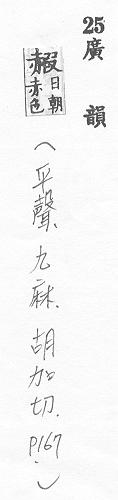 25 廣韻
赮日朝赤色
(平聲.九麻.胡加切.P167.)